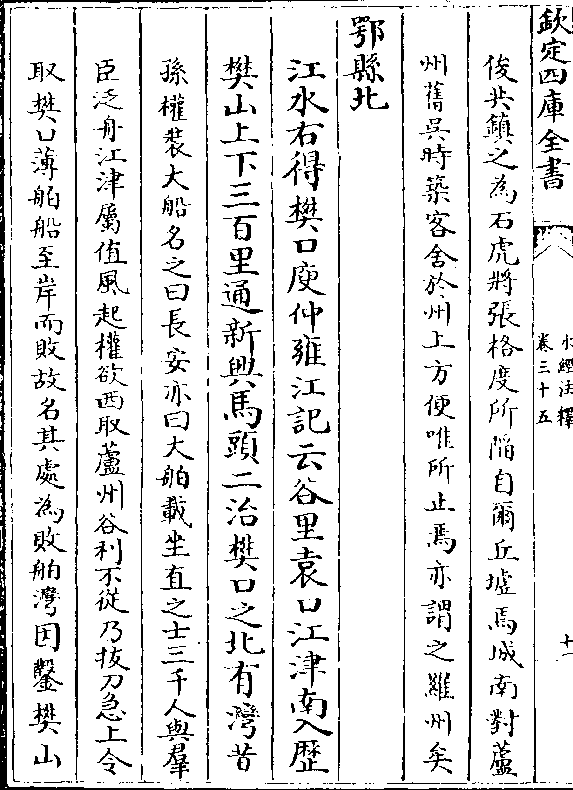 欽定四庫全書
水經注釋
卷三十五
十一
俊共鎮之為石虎將張格度所陷自爾丘墟焉城南對蘆
州舊吳時築客舍於州上方便唯所止焉亦謂之羅州矣
鄂縣北
江水右得樊口庾仲雍江記云谷里袁口江津南入歷
樊山上下三百里通新興馬頭二治樊口之北有灣昔
孫權裝大船名之曰長安亦曰大舶載坐直之士三千人與羣
臣泛舟江津屬值風起權欲西取蘆州谷利不從乃拔刀急上令
取樊口薄舶船至岸而敗故名其處為敗舶灣因鑿樊山